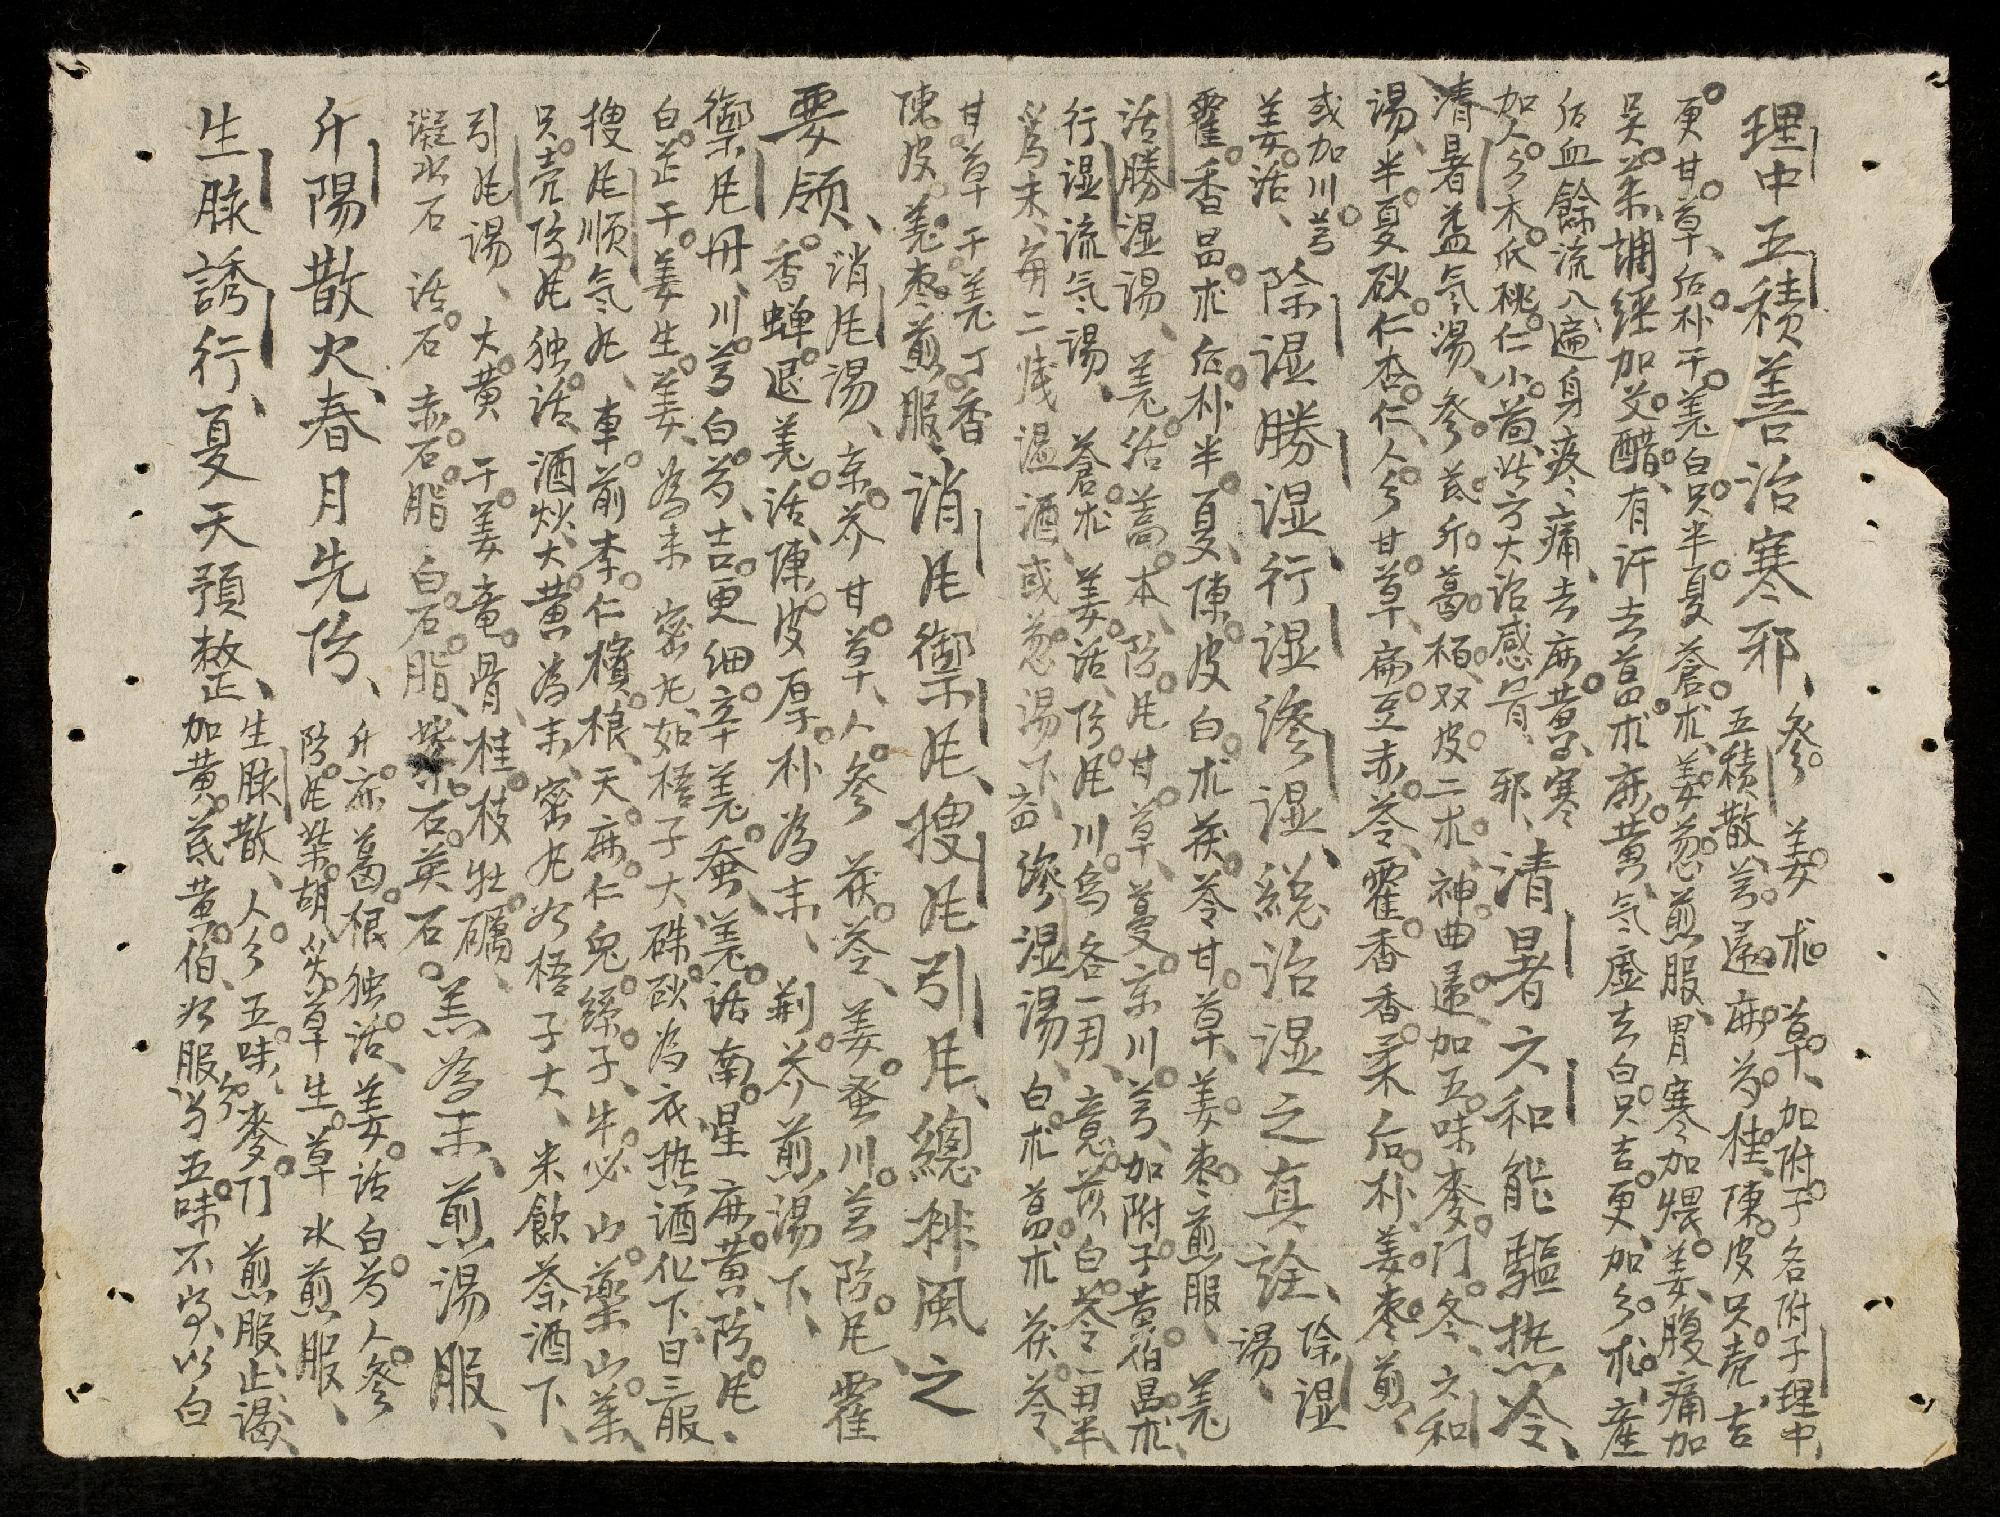 理中五積善治寒邪、參姜朮草、加附子名附子理中、
五積散、芎歸麻芍桂陳皮只壳、吉
更甘草、后朴干羌白只半夏蒼朮、姜葱煎服、胃寒加煨姜、腹痛加
吴茱、調經加艾醋、有汗去蒼朮麻黄、氣虛去白只吉更、加參朮、産
后血餘流入遍身疼痛、去麻黄、寒
加人參木瓜桃仁小茴、此方大治感冐邪、清暑六和能驅热冷、
清暑益氣湯、參芪升葛栢双皮二朮、神曲歸、加五味麥门冬、六和
湯、半夏砂仁杏仁、人參甘草、扁豆赤苓、霍香香柔后朴姜枣煎、
或加川芎
姜活、除湿勝湿行湿滲湿、総治湿之真詮、除湿
湯、
霍香昌朮后朴半夏、陳皮白朮茯苓甘草、姜枣煎服、羌
活勝湿湯、羌活蒿本、防𠘧甘草、蔓京川芎、加附子黄伯昌朮、
行湿流氣湯、蒼朮、姜活、防𠘧川烏各一用、意苡白苓一用半
爲末、每二戔温酒或葱湯下、滲湿湯、白朮蒼朮茯苓、
甘草干羌丁香
陳皮、羌枣煎服、消𠘧禦𠘧、搜𠘧引𠘧、總秝風之
要领、消𠘧湯、京芥甘草、人參茯苓、姜蚕川芎防𠘧霍
香蝉退羌活、陳皮厚朴為末、荆芥煎湯下、
禦𠘧丹、川芎白芍、吉更細辛羌蚕、羌活南星麻黄、防𠘧、
白芷干姜生姜、為末密丸如梧子大硃砂為衣热酒化下日三服
搜𠘧順氣丸、車前李仁檳榔、天麻仁兔絲子、牛必山藥山茱、
只壳防𠘧独活、酒炒大黄為末、密丸如梧子大、米飲茶酒下、
引𠘧湯、大黄干姜竜骨、桂枝牡礪、
凝水石活石赤石脂白石脂、紫石英石。羔為末、煎湯服、
升陽散火、春月先防、升麻葛根独活、姜活白芍人參
防𠘧柴胡炙草生草水煎服、
生脉誘行、夏天預整、生脉散、人參五味、麥门煎服止渴、
加黄芪黄伯、